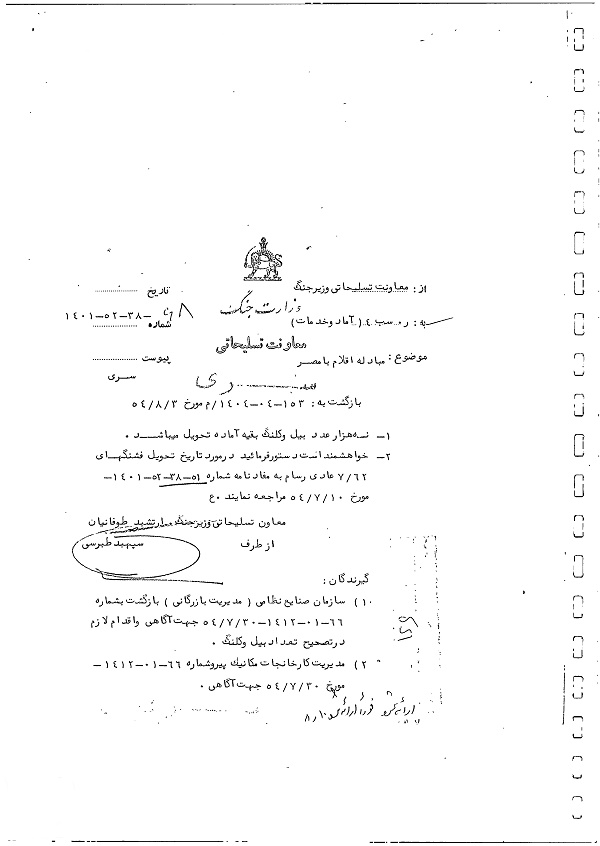 از : معاونت تسلیحاتی وزیرجنگ
تاریخ ................
وزارت جنگ
۱۴۰۱-۵۲-۳۸-
به : ر۰ سب ٤ (آماد و خدمات)
شماره ................
معاونت تسلیحاتی
موضوع : مبادله اقلام با مصر
پیوست ................
سری
بازگشت به : ۱۵۳-۰۴-۱۴۰۴/م مورخ ۵٤/۸/۳
۱- سه هزار عدد بیل و کلنگ بقیه آماده تحویل میباشد .
۲- خواهشمند است دستور فرمائید در مورد تاریخ تحویل فشنگهای
۷/۶۲ عادی رسام به مفاد نامه شماره ۵۱-۳۸-۵۲-۱۴۰۱-
مورخ ۵٤/۷/۱۰ مراجعه نمایند ۰ع
معاون تسلیحاتی وزیرجنگ ارتشبد طوفانیان
از طرف سپهبد طبرسی
گیرندگان :
۱۰) سازمان صنایع نظامی ( مدیریت بازرگانی ) بازگشت بشماره
۶۶-۰۱-۱۴۱۲-۵٤/۷/۳۰ جهت آگاهی و اقدام لازم
در تصحیح تعداد بیل و کلنگ .
۲) مدیریت کارخانجات مکانیک پیرو شماره ۶۶-۰۱-۱۴۱۲-
مورخ ۵٤/۷/۳۰ جهت آگاهی .